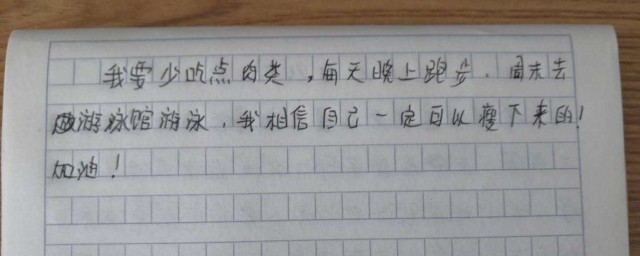 我要少吃点肉类,每天晚上跑步.周末去
游泳馆游泳,我相信自己一定可以瘦下来的!
加油!